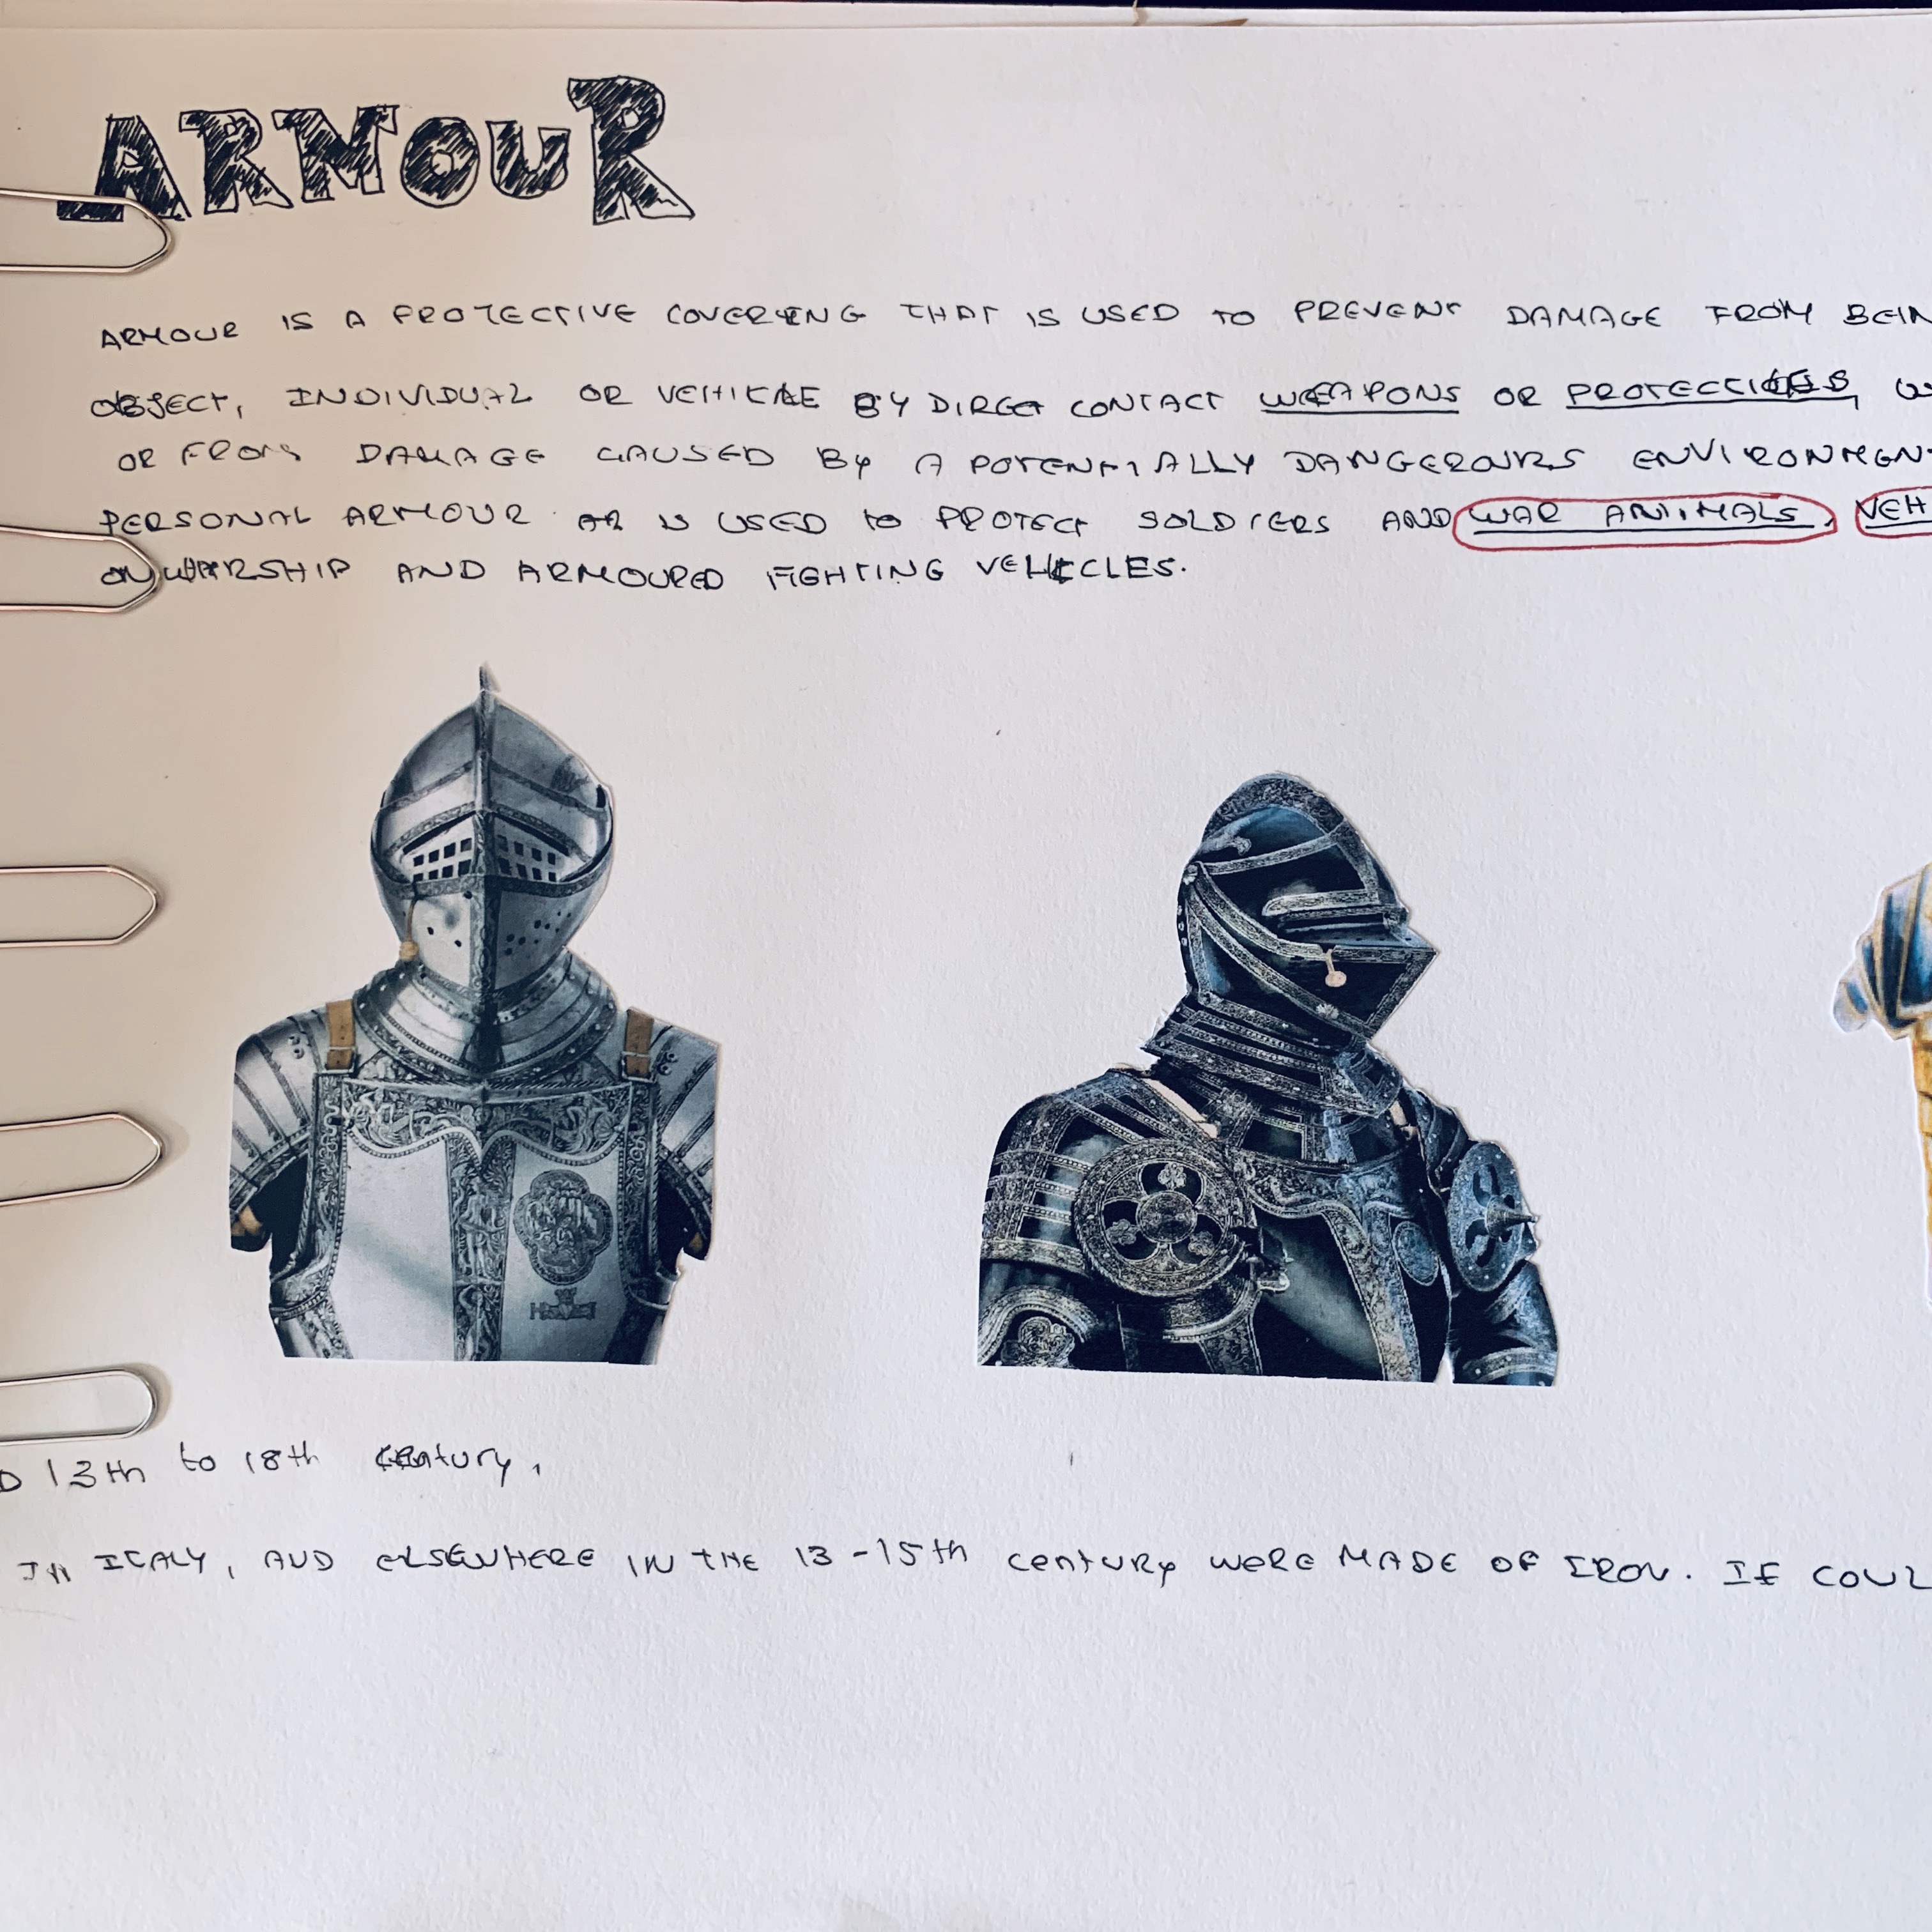 ARMOUR
ARMOUR IS A PROTECTIVE COVERING THAT IS USED TO PREVENT DAMAGE FROM BEIN
OBJECT, INDIVIDUAL OR VEHICLE BY DIRECT CONTACT WEAPONS OR
OR FROM DAMAGE CAUSED BY A POTENTIALLY DANGEROURS ENVIRONMENT
PERSONAL ARMOUR IS USED TO PROTECT SOLDIERS AND WAR ANIMALS, VEH
ON WARSHIP AND ARMOURED FIGHTING VEHICLES.
D 13th to 18th century,
IN ITALY, AND ELSEWHERE IN THE 13-15th century WERE MADE OF IRON. IF COUL